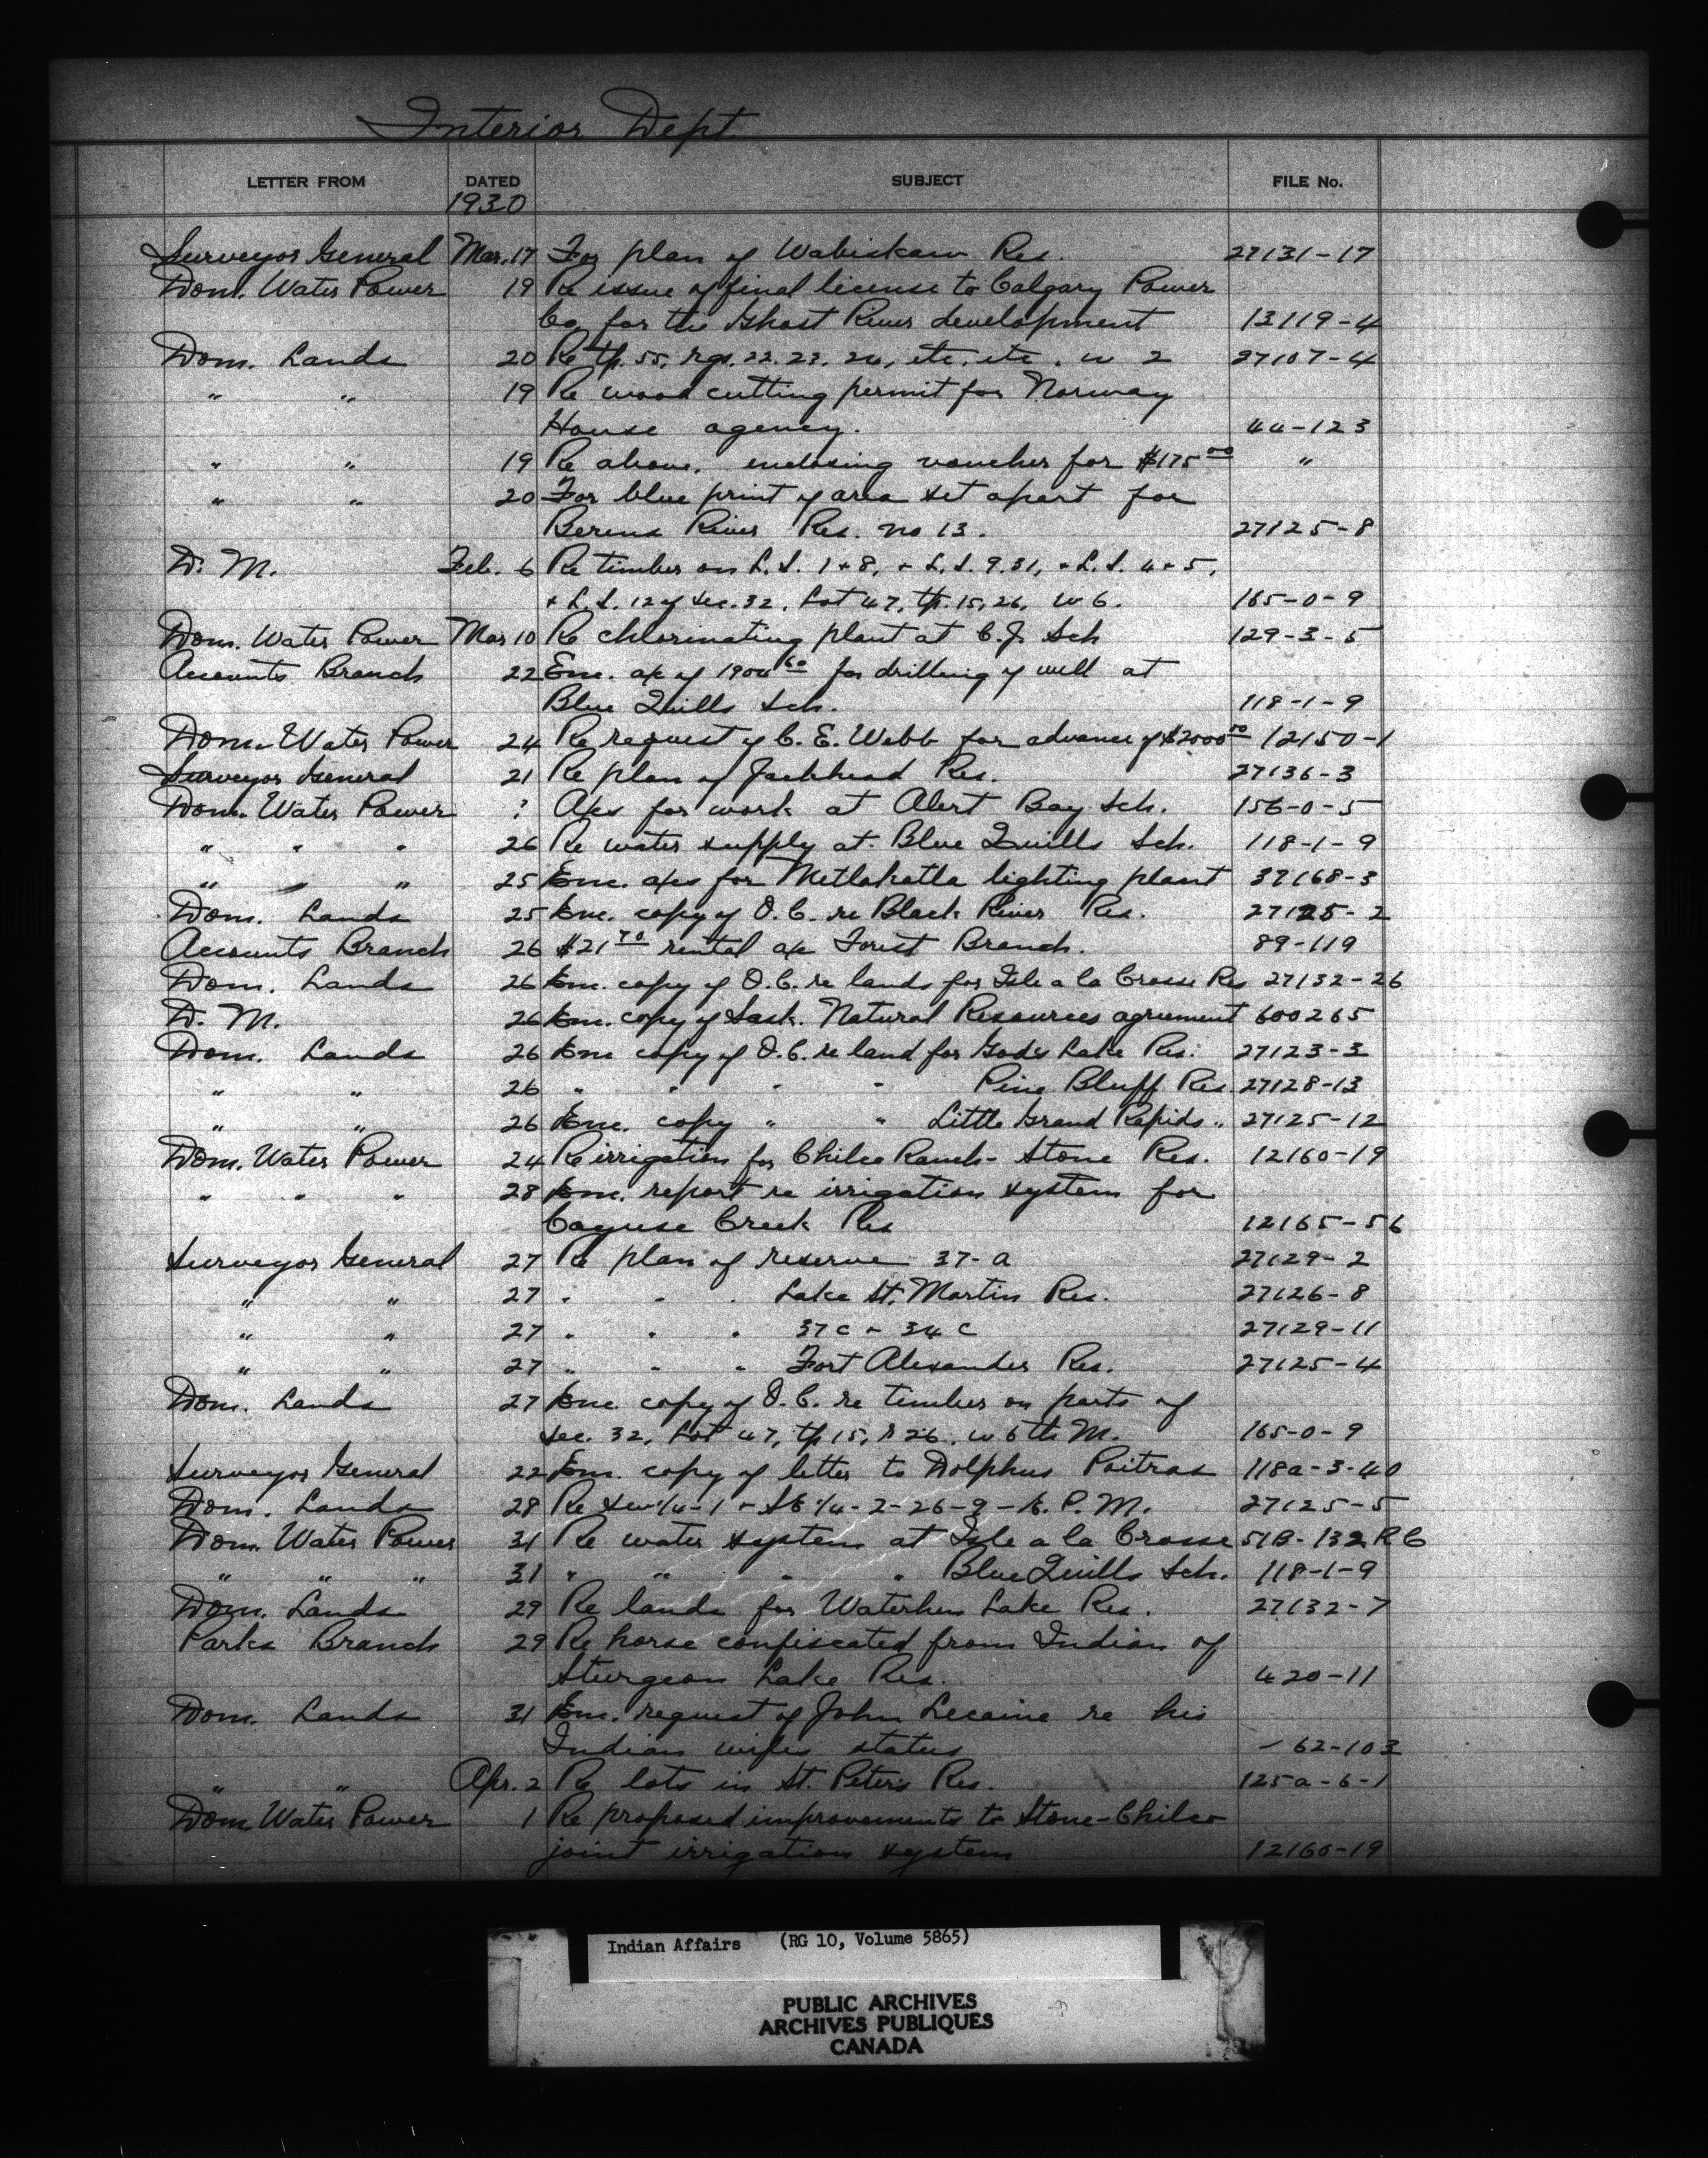 Interior Dept
LETTER FROM DATED SUBJECT FILE No.
1930
Surveyor General Mar. 17 For plan of Wabiskaw Res. 27131-17
Dom. Water Power 19 Re issue of final license to Calgary Power
Co. for the Ghost River development 13119-4
Dom. Lands 20 Re tp. 55, rgs. 22. 23. 24, etc. etc. w 2 27107-4
" " 19 Re wood cutting permit for Norway
House agency. 44-123
" " 19 Re above, enclosing voucher for $175 00 "
" " 20 For blue print of area set apart for
Berens River Res. no 13. 27125-8
D. M. Feb. 6 Re timber on L.S. 1+8, + L.S. 9.31, + L.S. 4+5,
+ L.S. 12 of Sec. 32, Lot 47, tp. 15, 26, W 6. 165-0-9
Dom. Water Power Mar 10 Re chlorinating plant at C.J. Sch 129-3-5
Accounts Branch 22 Enc. a/c of 1904 60 for drilling of well at
Blue Quills Sch. 118-1-9
Dom. Water Power 24 Re request of C. E. Webb for advance of $2000 00 12150-1
Surveyor General 21 Re plan of Jackhead Res. 27136-3
Dom. Water Power ? A/cs for work at Alert Bay Sch. 156-0-5
" " " 26 Re water supply at Blue Quills Sch. 118-1-9
" " " 25 Enc. a/cs for Metlakatla lighting plant 37168-3
Dom. Lands 25 Enc. copy of O.C. re Black River Res. 27125-2
Accounts Branch 26 $21 70 rental a/c Forest Branch. 89-119
Dom. Lands 26 Enc. copy of O.C. re lands for Isle a la Crosse Res 27132-26
D. M. 26 Enc. copy of Sask. Natural Resources agreement 600265
Dom. Lands 26 Enc copy of O.C. re land for Gods Lake Res. 27123-3
" " 26 " " " " Pine Bluff Res. 27128-13
" " 26 Enc. copy " " Little Grand Rapids " 27125-12
Dom. Water Power 24 Re irrigation for Chilco Ranch - Stone Res. 12160-19
" " " 28 Enc. report re irrigation system for
Cayuse Creek Res 12165-56
Surveyor General 27 Re plan of reserve 37-a 27129-2
" " 27 " " " Lake St. Martin Res. 27126-8
" " 27 " " " 37 c + 34 c 27129-11
" " 27 " " " Fort Alexander Res. 27125-4
Dom. Lands 27 Enc. copy of O.C. re timber on parts of
Sec. 32, Lot 47, tp 15, R 26, w 6th M. 165-0-9
Surveyor General 22 Enc. copy of letter to Dolphus Poitras 118a-3-40
Dom. Lands 28 Re SW 1/4-1 + SE 1/4-2-26-9-E. P. M. 27125-5
Dom Water Power 31 Re water system at Isle a la Crosse 51B-132 RC
" " " 31 " " " " Blue Quills Sch. 118-1-9
Dom. Lands 29 Re lands for Waterhen Lake Res. 27132-7
Parks Branch 29 Re horse confiscated from Indian of
Sturgeon Lake Res. 420-11
Dom. Lands 31 Enc. request of John Lecaine re his
Indian wifes status - 62-103
" " Apr. 2 Re lots in St. Peters Res. 125a-6-1
Dom Water Power 1 Re proposed improvements to Stone-Chilco
joint irrigation system 12160-19
Indian Affairs (RG 10, Volume 5865)
PUBLIC ARCHIVES
ARCHIVES PUBLIQUES
CANADA